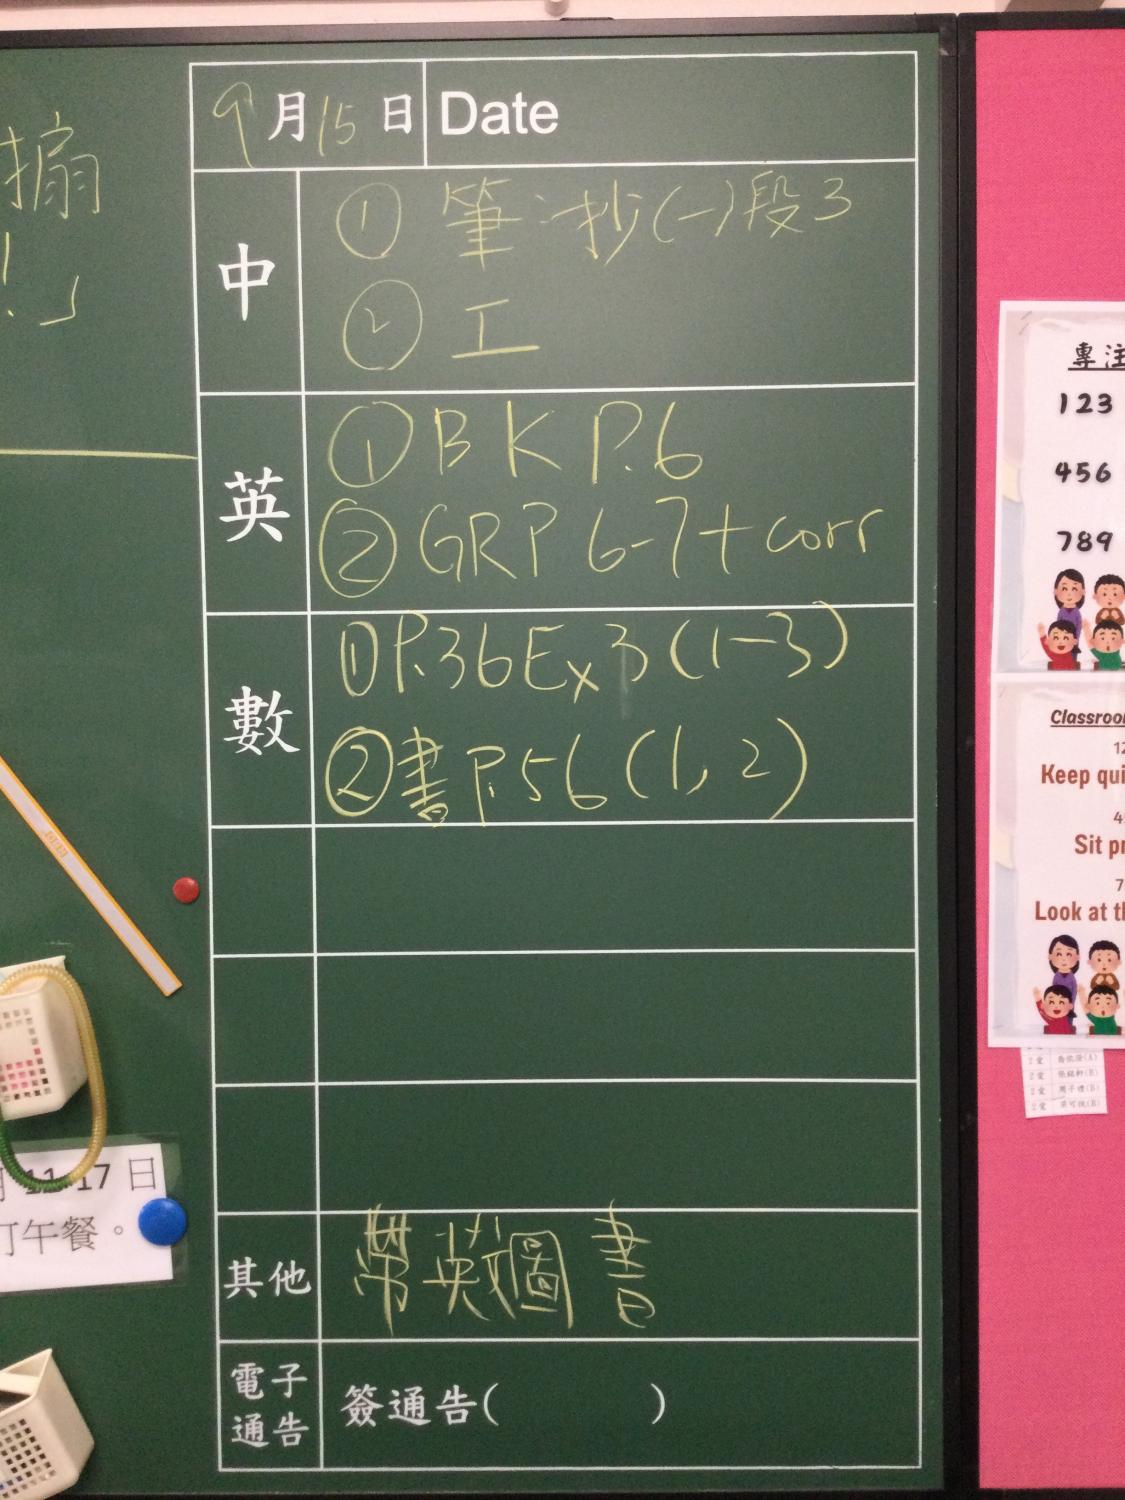 搧
！」
9月15日 Date
中
① 筆:抄(一)段3
② 工
英
① BK P.6
② GRP 6-7+corr
數
① P.36 Ex 3 (1-3)
② 書 P.56 (1, 2)
其他
帶英文圖書
電子
通告
簽通告( )
11-17 日
訂午餐。
專注
123
456
789
Keep qui
Sit pr
Look at th
2愛
2愛
2愛
2愛